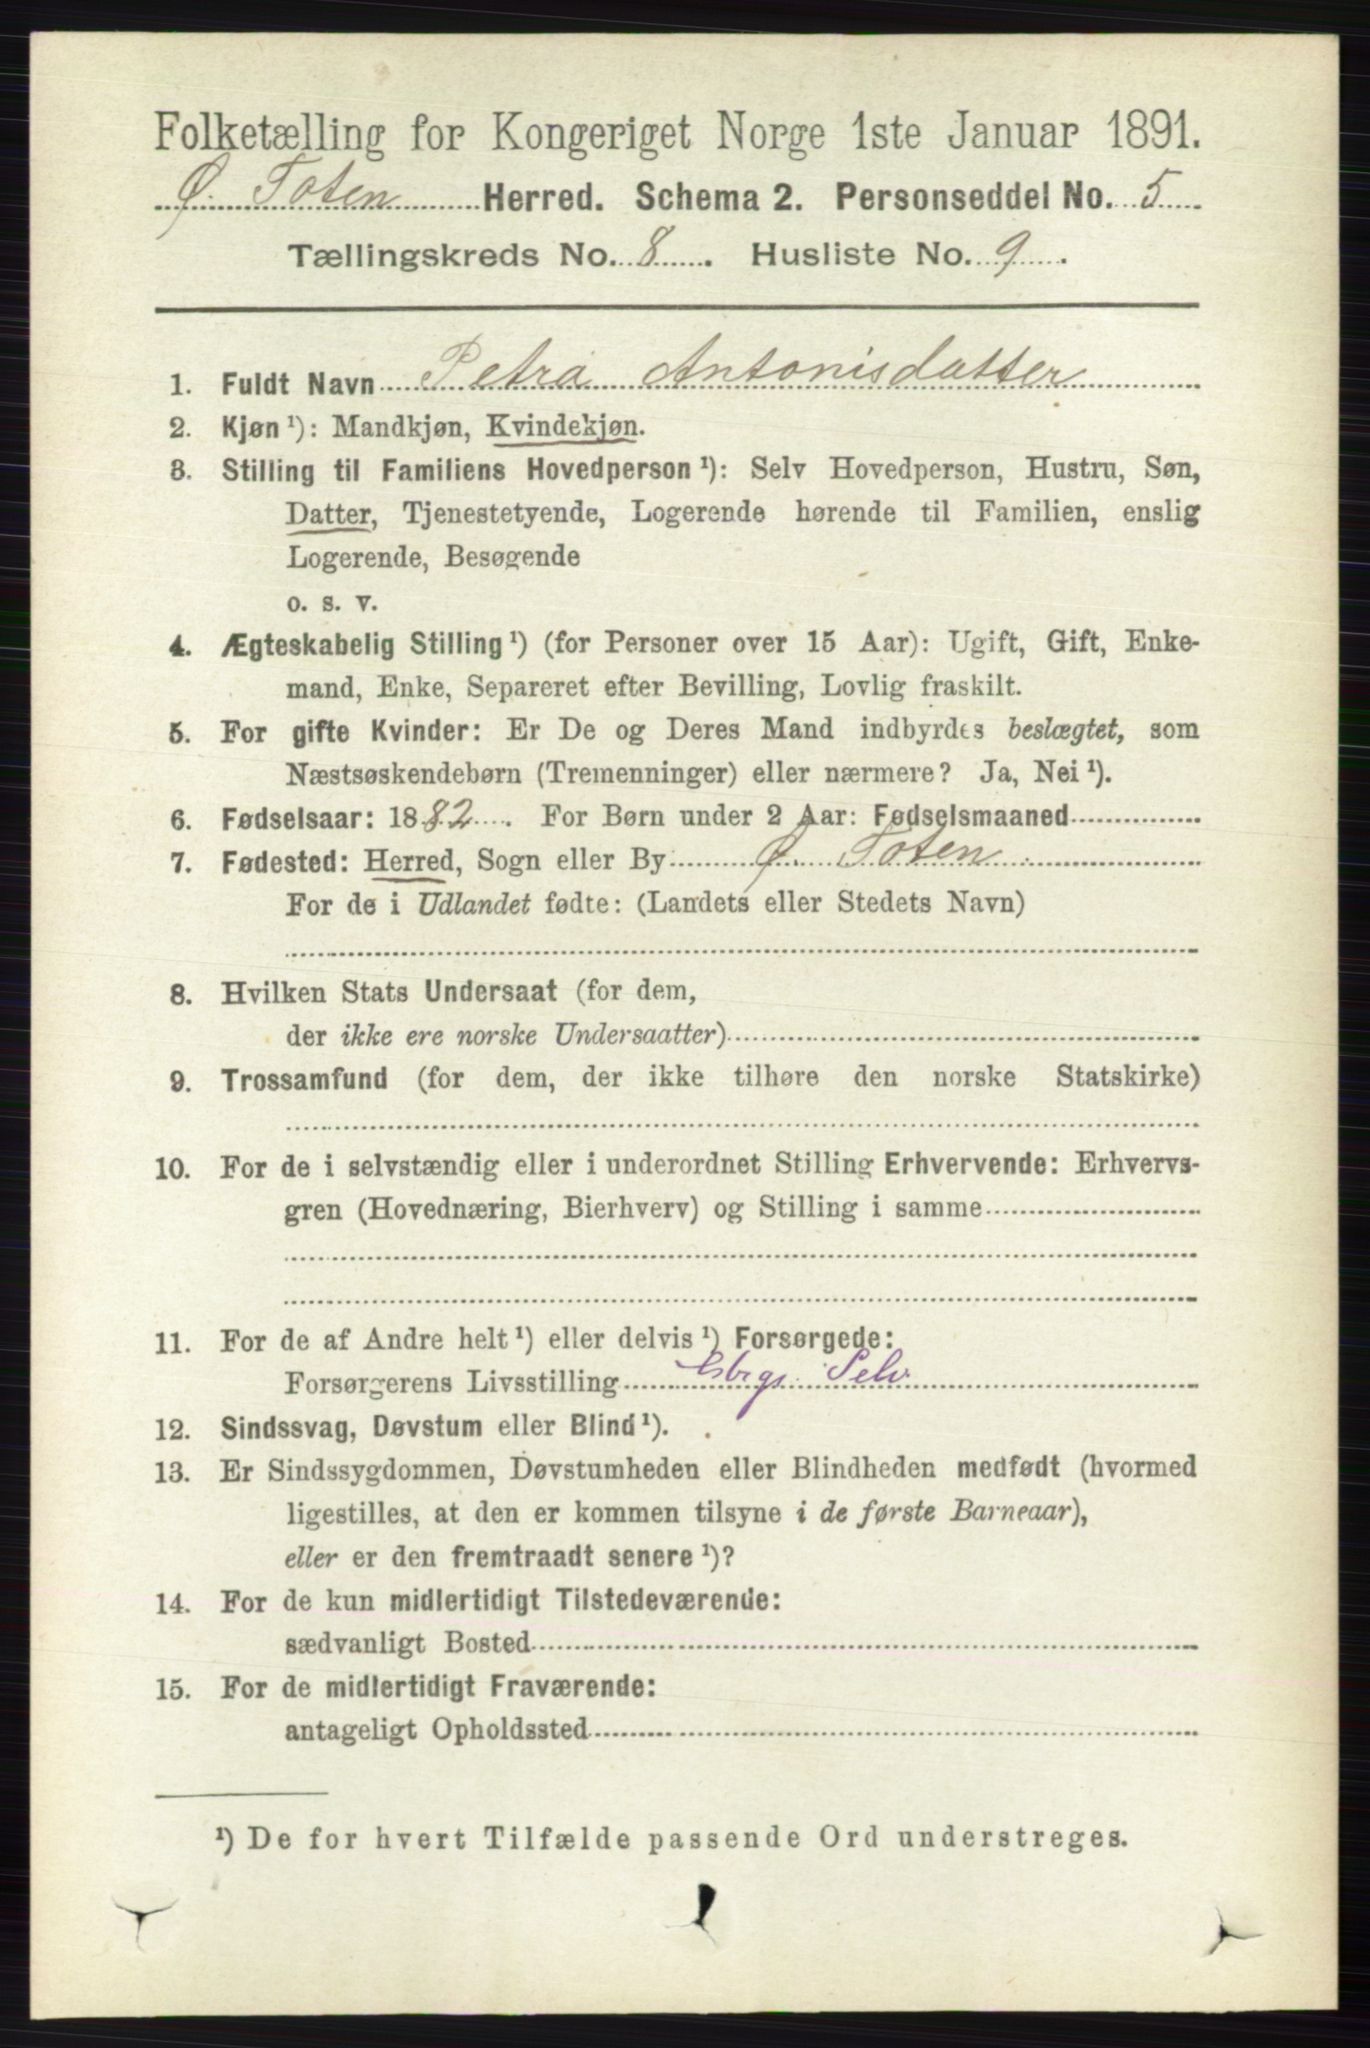 Folketælling for Kongeriget Norge 1ste Januar 1891.
Ø. Toten Herred. Schema 2. Personseddel No. 5
Tællingskreds No. 8. Husliste No. 9.
1. Fuldt Navn Petra Antonisdatter
2. Kjøn ¹): Mandkjøn, Kvindekjøn.
3. Stilling til Familiens Hovedperson ¹): Selv Hovedperson, Hustru, Søn,
Datter, Tjenestetyende, Logerende hørende til Familien, enslig
Logerende, Besøgende
o. s. v.
4. Ægteskabelig Stilling ¹) (for Personer over 15 Aar): Ugift, Gift, Enke-
mand, Enke, Separeret efter Bevilling, Lovlig fraskilt.
5. For gifte Kvinder: Er De og Deres Mand indbyrdes beslægtet, som
Næstsøskendebørn (Tremenninger) eller nærmere? Ja, Nei ¹).
6. Fødselsaar: 1882. For Børn under 2 Aar: Fødselsmaaned
7. Fødested: Herred, Sogn eller By Ø. Toten
For de i Udlandet fødte: (Landets eller Stedets Navn)
8. Hvilken Stats Undersaat (for dem,
der ikke ere norske Undersaatter)
9. Trossamfund (for dem, der ikke tilhøre den norske Statskirke)
10. For de i selvstændig eller i underordnet Stilling Erhvervende: Erhvervs-
gren (Hovednæring, Bierhverv) og Stilling i samme
11. For de af Andre helt ¹) eller delvis ¹) Forsørgede:
Forsørgerens Livsstilling Gbrgs. Selv.
12. Sindssvag, Døvstum eller Blind ¹).
13. Er Sindssygdommen, Døvstumheden eller Blindheden medfødt (hvormed
ligestilles, at den er kommen tilsyne i de første Barneaar),
eller er den fremtraadt senere ¹)?
14. For de kun midlertidigt Tilstedeværende:
sædvanligt Bosted
15. For de midlertidigt Fraværende:
antageligt Opholdssted
¹) De for hvert Tilfælde passende Ord understreges.